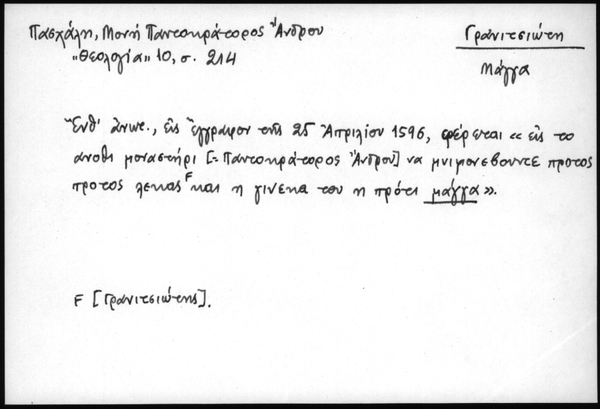 Πασχάλη, Μονή Παντοκράτορος Ἄνδρου
"Θεολογία" 10, σ. 214
Γρανιτσιώτη
Μάγγα
Ἔνθ' ἀνωτ., εἰς ἔγγραφον τῆς 25 Ἀπριλίου 1596, φέρεται « εἰς το
ανοθι μοναστήρι [= Παντοκράτορος Ἄνδρου] να μνιμονεβουντε προτος
προτος λεκας F και η γινεκα του η πρότι μάγγα ».
F [Γρανιτσιώτης].